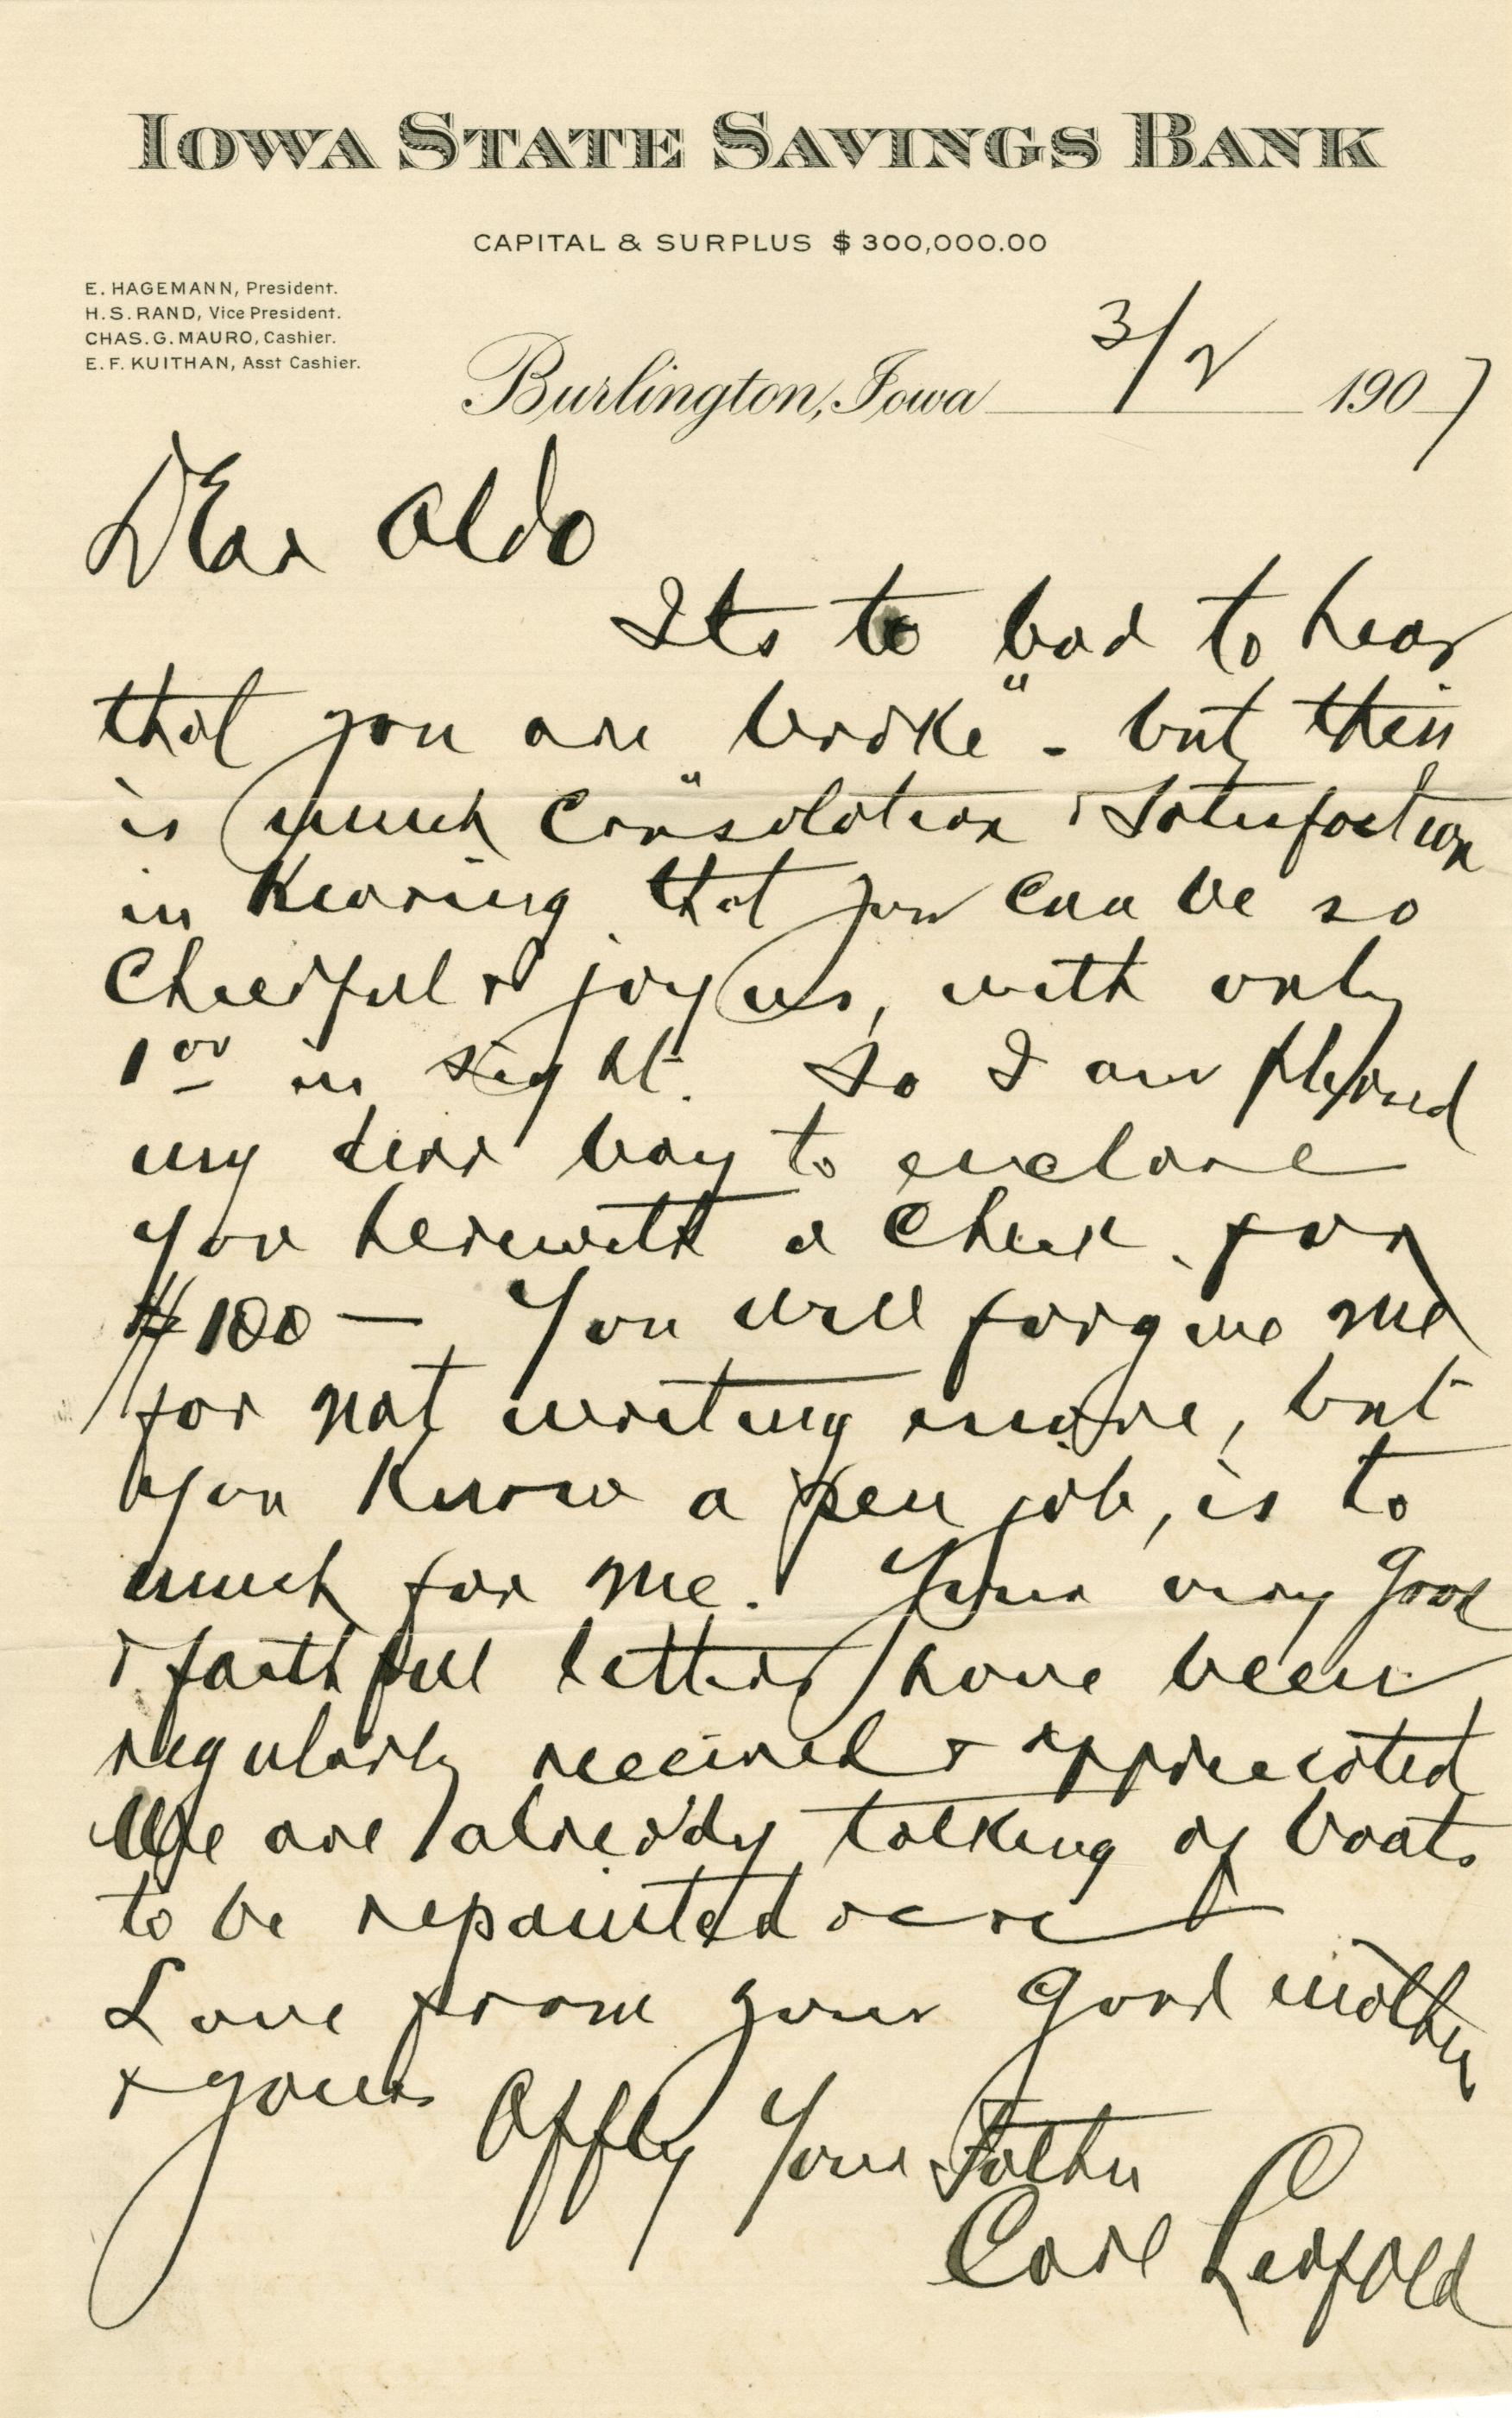 IOWA STATE SAVINGS BANK
CAPITAL & SURPLUS $300,000.00
E. HAGEMANN, President.
H. S. RAND, Vice President.
CHAS. G. MAURO, Cashier.
E. F. KUITHAN, Asst Cashier.
Burlington, Iowa 3/2 1907
Dear Aldo
Its to bad to hear
that you are "broke" - but their
is much consolation & satisfaction
in hearing that you can be so
Cheerful & joyous, with only
1 00 in sight. So I am pleased
my dear boy to enclose
you herewith a check for
$100 — You will forgive me
for not writing more, but
you know a pen job, is to
much for me. Your very good
& faithful letters have been
regularly received & appreciated
We are already talking of boats
to be repainted
Love from your good mother
& yours Affly Your Father
Carl Leopold